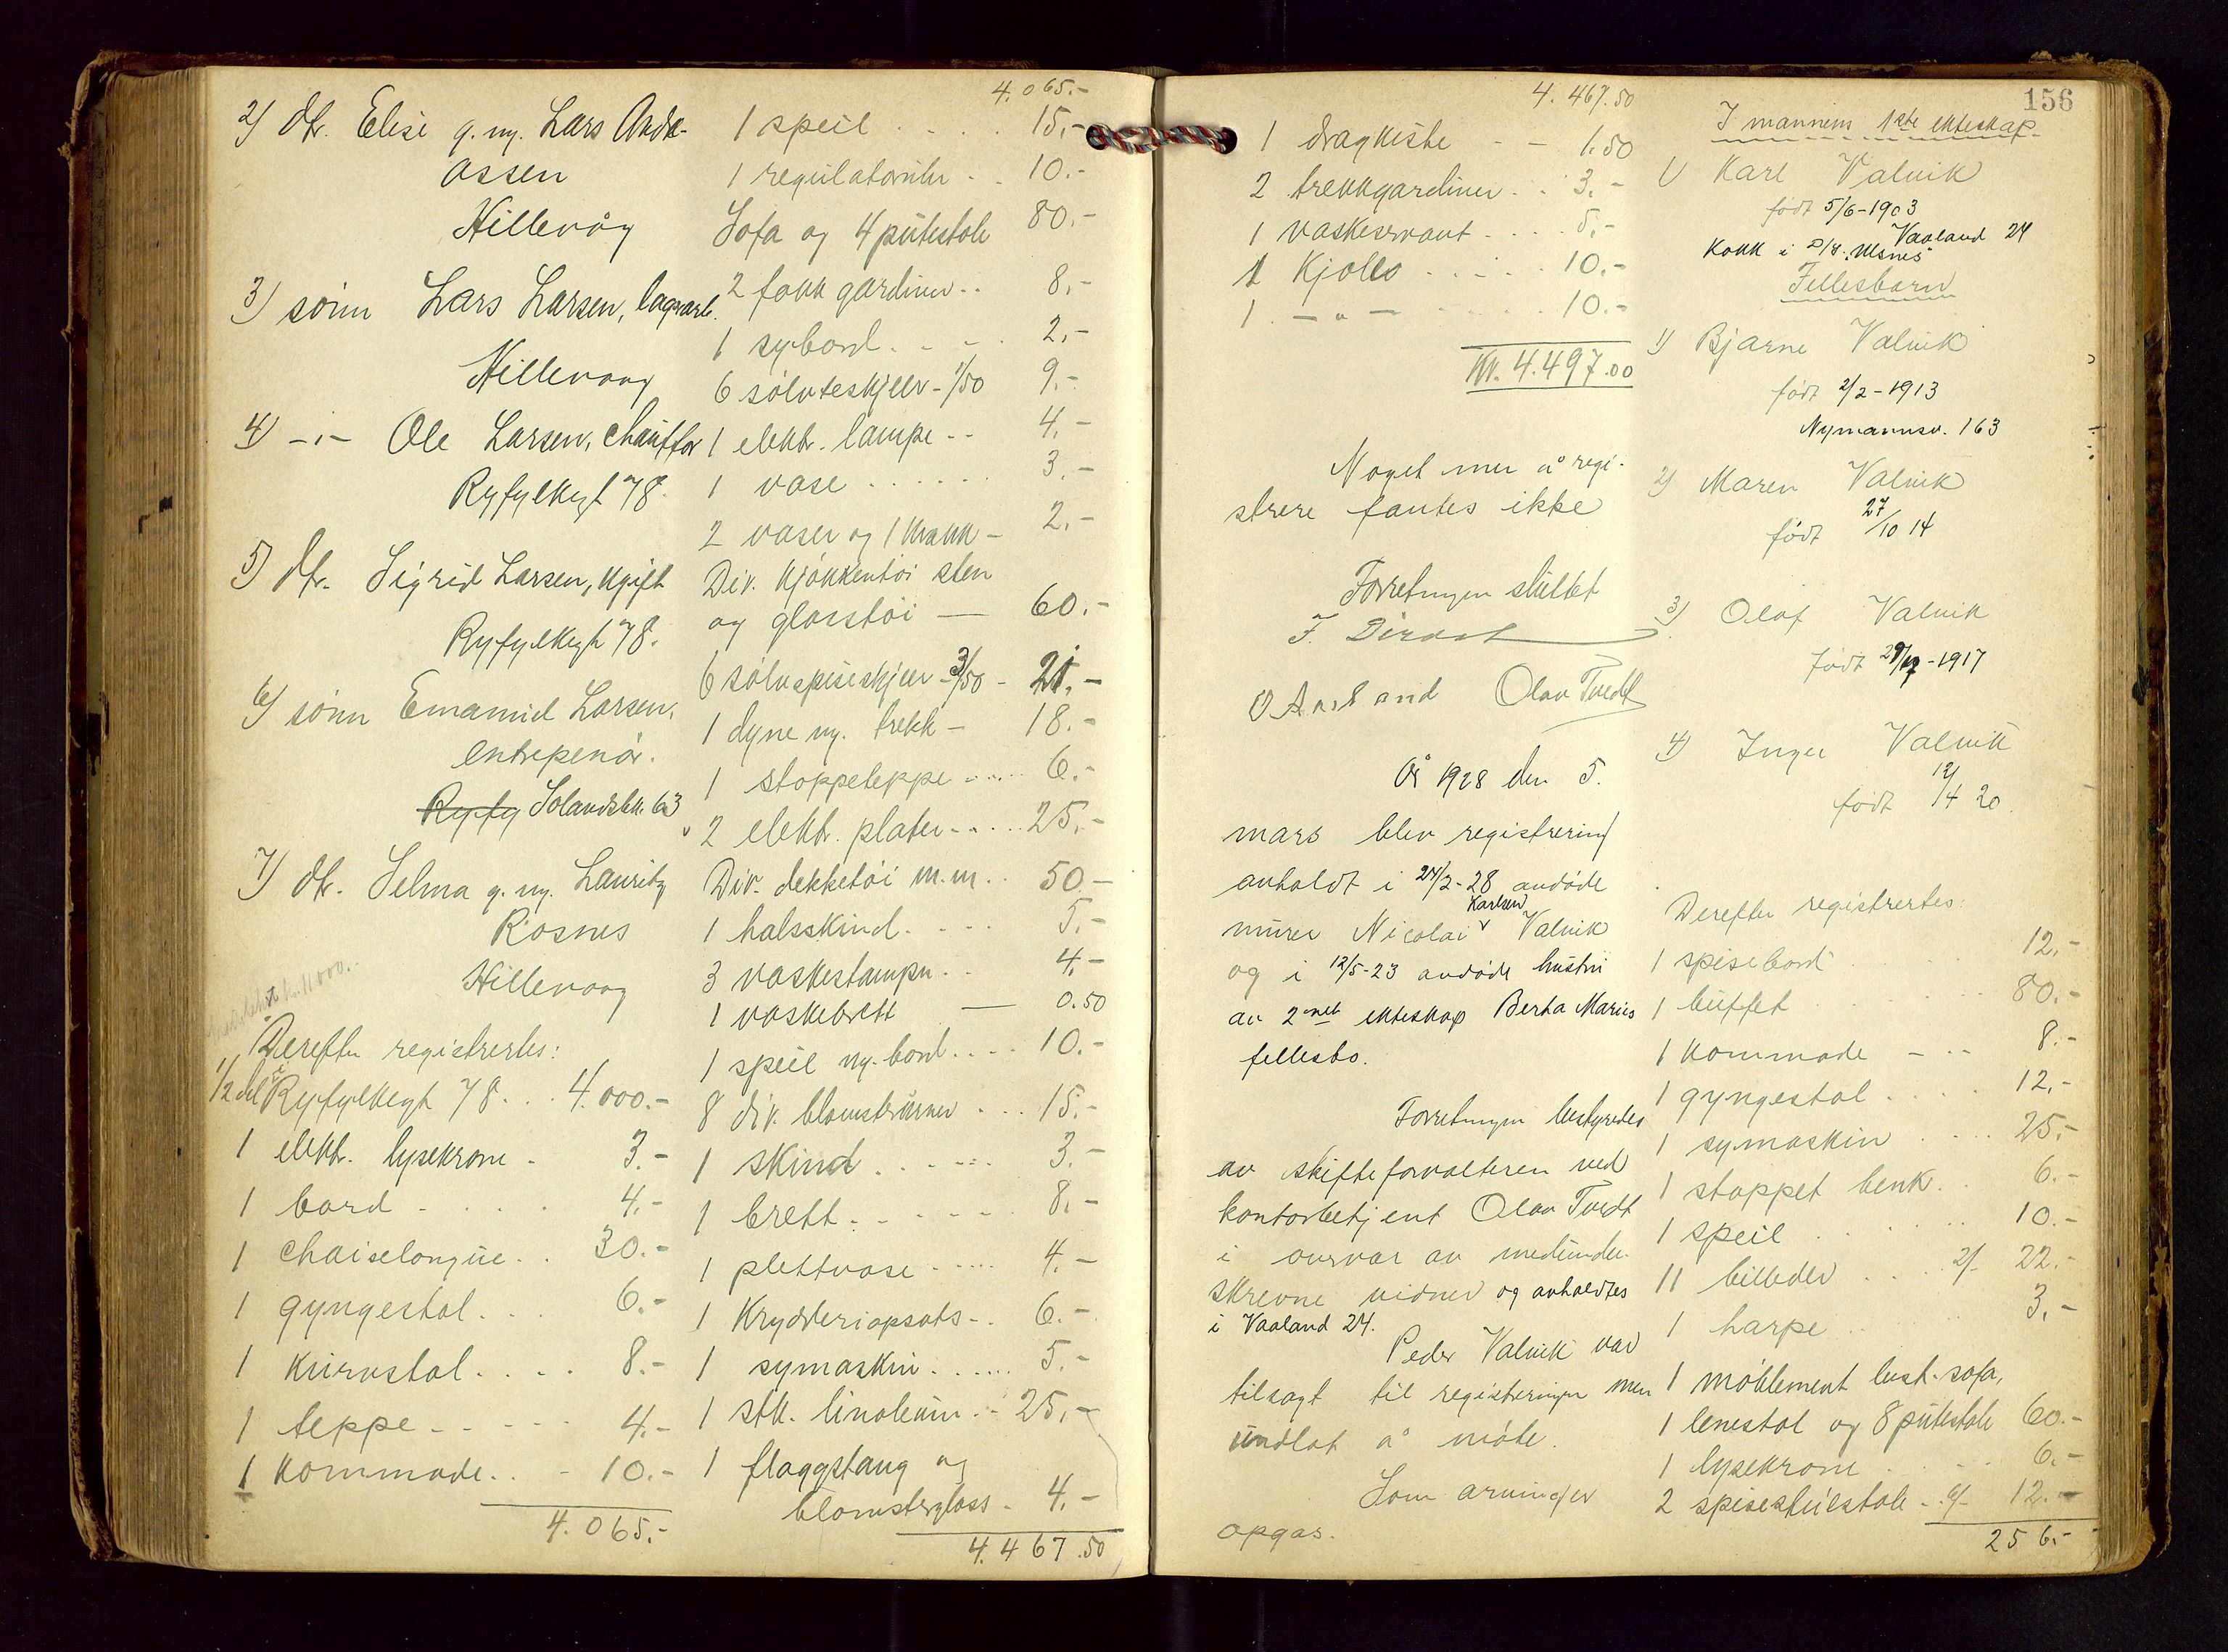 2) Dtr. Elise g. m. Lars Andr-
assen
Hillevåg
3) sönn Lars Larsen, lagerarb.
Hillevaag
4) -"- Ole Larsen, chauffør
Ryfylkegt 78.
5) Dtr. Sigrid Larsen, ugift
Ryfylkegt 78.
6) sönn Emanuel Larsen,
entrepenör.
Ryfy Solandsbk. 63
7) dtr. Selma g. m. Lauritz
Rosnes
Hillevaag
Derefter registrertes:
1/2 del i Ryfylkegt 78 . . . 4.000.-
1 elektr. lysekrone - 3.-
1 bord - . . . 4.-
1 chaiselongue . . 30.-
1 gyngestol . . . 6.-
1 kurvstol . . . . 8.-
1 teppe - - - - - 4.-
1 kommode . . - 10.-
4.065.-
4.065.-
1 speil . . . . 15.-
1 regulatoruhr . . 10.-
Sofa og 4 putestole 80.-
2 fakk gardiner . . 8.-
1 sybord . . - . 2.-
6 sølvteskjeer - 1/50 9.-
1 elektr. lampe - - 4.-
1 vase . . . . . . 3.-
2 vaser og 1 krakk - 2.-
Div. kjøkkentöi sten
og glasstöi — 60.-
6 sölvspiseskjeer - 3/50 - 21.-
1 dyne m. trekk - 18.-
1 stoppeteppe . . . . . 6.-
2 elektr. plater - . . . 25.-
Div. dekketöi m.m. . 50.-
1 halsskind . . . . 5.-
3 vaskestamper . . 4.-
1 vaskebrett — 0.50
1 speil m. bord . . . . 10.-
8 div. blomsterurner . . . 15.-
1 skind . . . . . . 3.-
1 brett . . . . . . 8.-
1 plettvase . . . . . 4.-
1 Krydderiopsats - . 6.-
1 symaskin . . . . . . 5.-
1 stk. linoleum . - 25.-
1 flaggstang og
blomsterglass - 4.-
4.467.50
156
4.467.50
1 dragkiste - - 1.50
2 trekkgardiner . . . 3.-
1 vaskeservant . . . . 5.-
1 Kjole . . . . . 10.-
1 - " - . . . . . 10.-
Kr. 4.497.00
Noget mer å regi-
strere fantes ikke
Forretningen sluttet
Olav Tvedt
År 1928 den 5.
mars blev registrering
avholdt i 24/2-28 avdöde
Karlsen
murer Nicolai v Valvik
og i 12/5-23 avdöde hustru
av 2net ekteskap Berta Maries
fellesbo.
Forretningen bestyredes
av skifteforvalteren ved
kontorbetjent Olav Tvedt
i overvær av medunder-
skrevne vidner og avholdtes
i Vaaland 24.
Peder Valvik var
tilsagt til registreringen men
undlot å möte.
Som arvinger
opgas.
I mannens 1ste ekteskap
1) Karl Valvik
født 5/6-1903
Vaaland 24
Kokk i D/S. "Ulsnes"
Fellesbarn
1) Bjarne Valvik
født 2/2-1913
Nymannsv. 163
2) Maren Valvik
født 27/10 14
3) Olaf Valvik
født -1917
4) Inger Valvik
født 12/4 20.
Derefter registrertes:
1 spisebord . . . . 12.-
1 buffet . . . . . 80.-
1 kommode - - - 8.-
1 gyngestol . . . . . 12.-
1 symaskin . . . . 25.-
1 stoppet benk . . 6.-
1 speil . . . . . 10.-
11 billeder . . . . 2/- 22.-
1 harpe . . . 3.-
1 möblement best. sofa,
1 lenestol og 8 putestole 60.-
1 lysekrone . . . . 6.-
2 spisestuestole - . 6/- 12.-
256.-